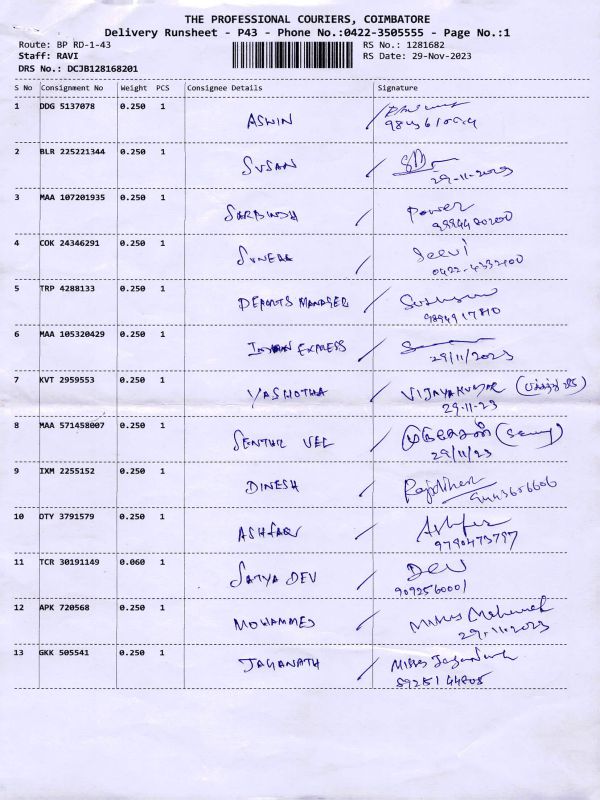 THE PROFESSIONAL COURIERS, COIMBATORE
Delivery Runsheet - P43 - Phone No.:0422-3505555 - Page No.:1
Route: BP RD-1-43 RS No.: 1281682
Staff: RAVI RS Date: 29-Nov-2023
DRS No.: DCJB128168201
S No Consignment No Weight PCS Consignee Details Signature
1 DDG 5137078 0.250 1 ASWIN
2 BLR 225221344 0.250 1 SUSAN
29-11-2023
3 MAA 107201935 0.250 1 Power
4 COK 24346291 0.250 1
0422-4332400
5 TRP 4288133 0.250 1 DEPOTS MANAGER
6 MAA 105320429 0.250 1 EXPRESS
29/11/2023
7 KVT 2959553 0.250 1 YASHOTHA VIJAYAKUMAR
29-11-23
8 MAA 571458007 0.250 1 SENTHIL VEL
29/11/23
9 IXM 2255152 0.250 1 DINESH
10 OTY 3791579 0.250 1 ASHFAQ
9790473797
11 TCR 30191149 0.060 1 SATYA DEV DEV
9092560001
12 APK 720568 0.250 1 MOHAMMED
29-11-2023
13 GKK 505541 0.250 1 JAGANATH